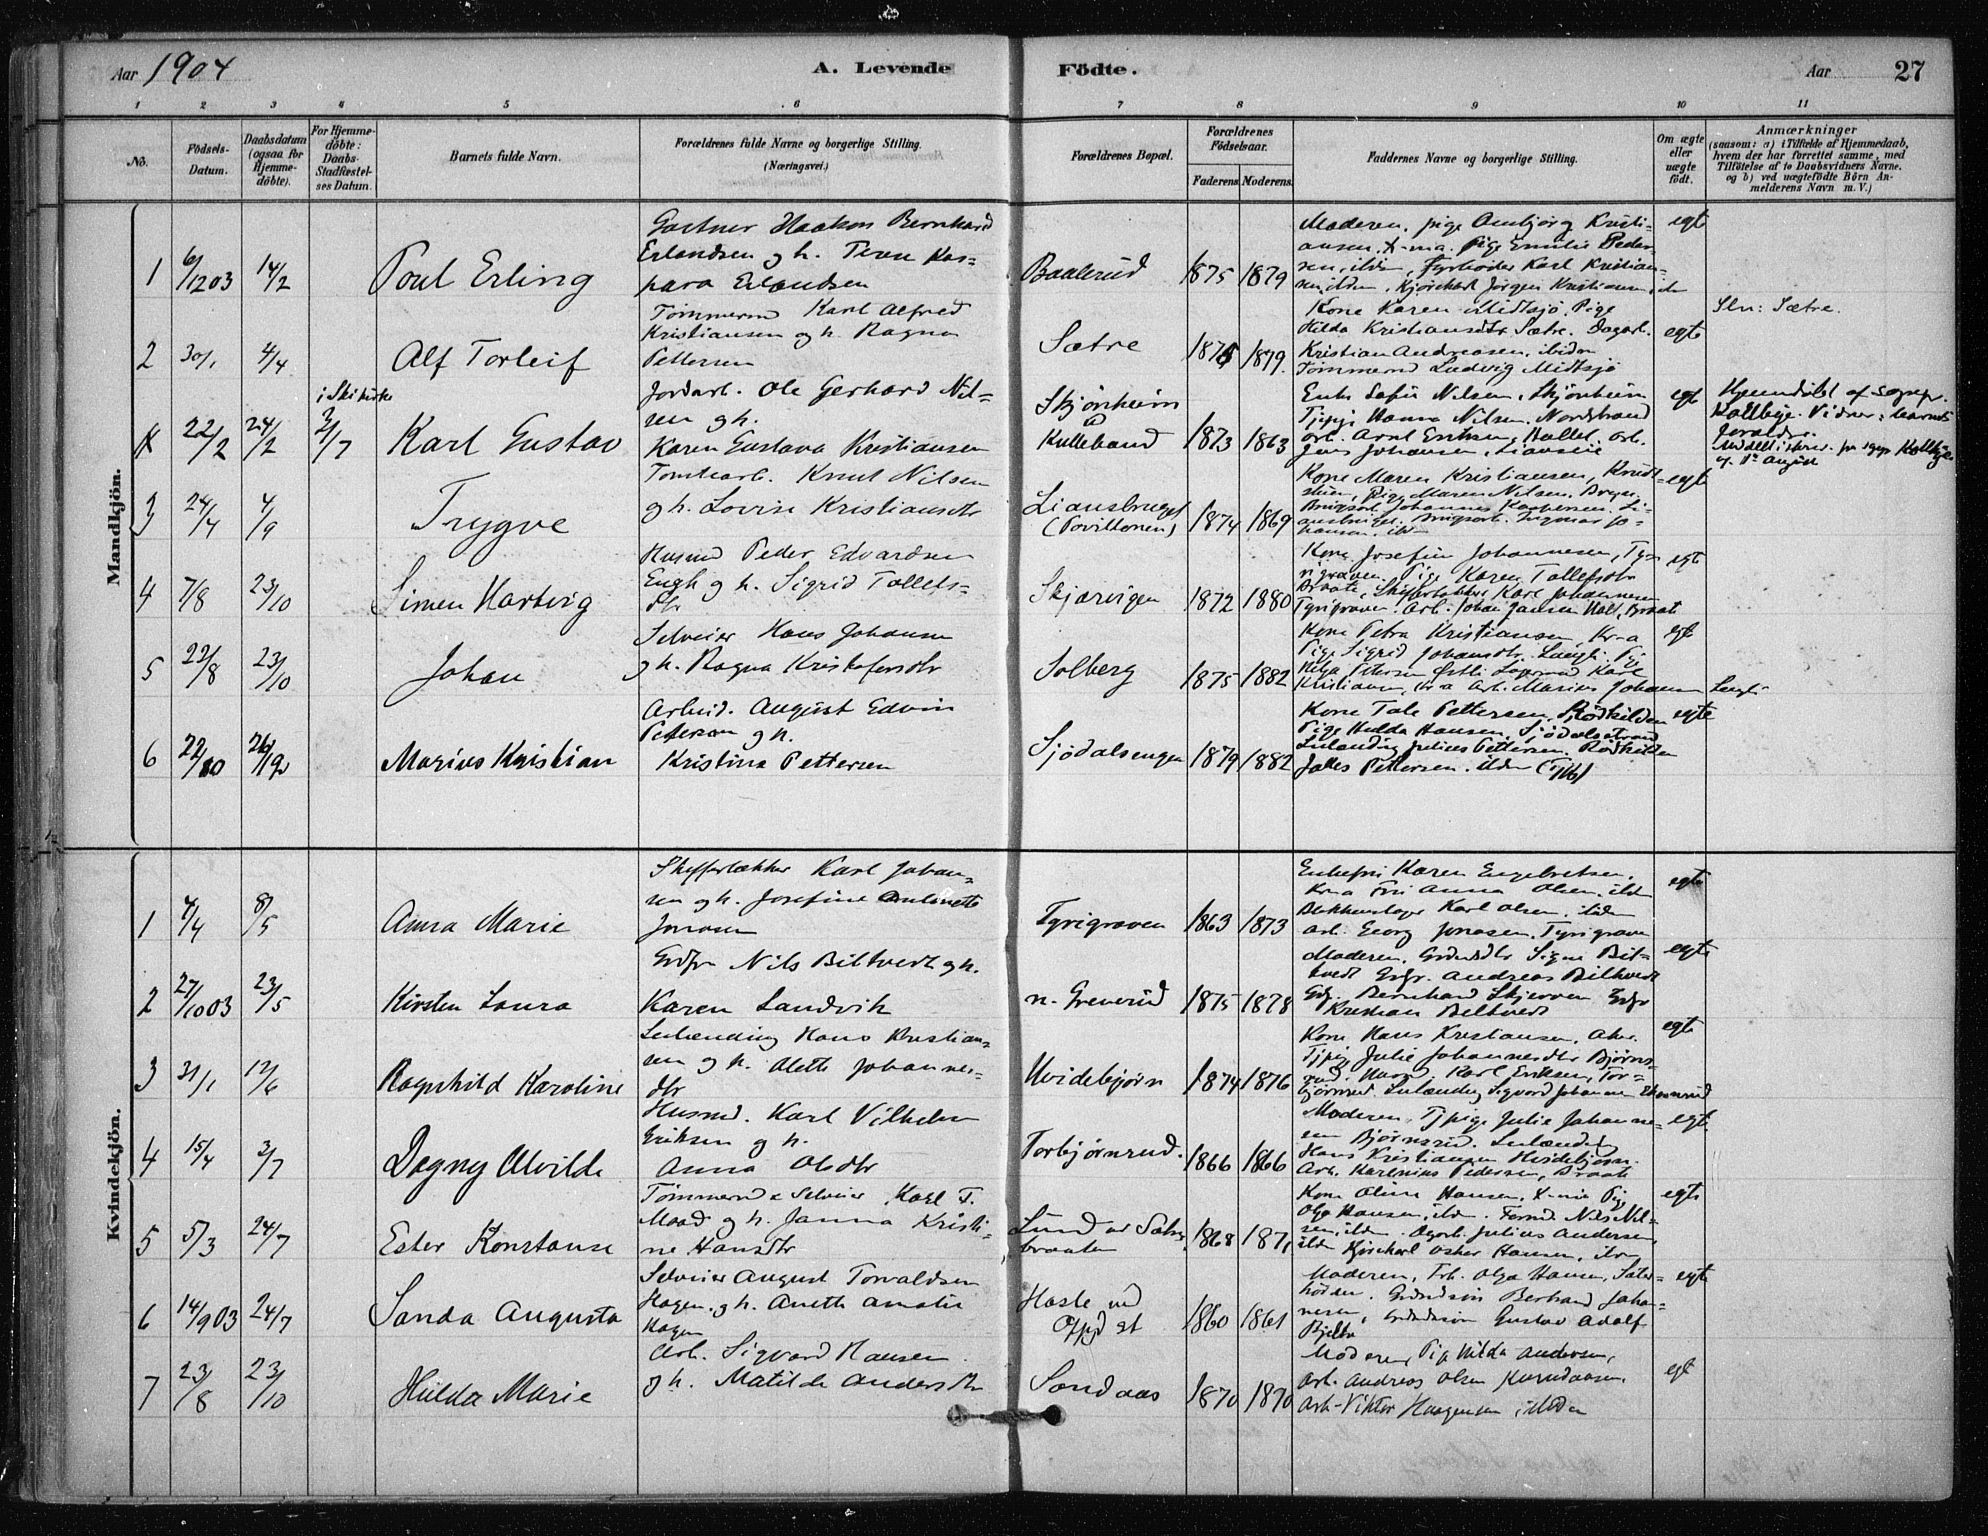 Aar 1904
A. Levende Födte.
Aar 27
1 2 3 4 5 6 7 8 9 10 11
No.
Födsels-Datum.
Daabsdatum (ogsaa for Hjemme-döbte).
For Hjemme-döbte: Daabs-Stadfæstel-ses Datum.
Barnets fulde Navn.
Forældrenes fulde Navne og borgerlige Stilling.
(Næringsvei.)
Forældrenes Bopæl.
Forældrenes Födselsaar.
Faderens. Moderens.
Faddernes Navne og borgerlige Stilling.
Om ægte eller uægte födt.
Anmærkninger
(saasom: a) i Tilfælde af Hjemmedaab,
hvem der har forrettet samme, med
Tilföielse af to Daabsvidners Navne.
og b) ved uægtefödte Börn An-
melderens Navn m. V.)
Mandkjön.
1 6/12 03 14/2 Poul Erling
Gartner Haakon Bernhard
Erlandsen og h.
Erlandsen
Baalerud 1875 1879
Moderen, pige Ambjørg Kristi-
ansen, X-ma. Pige Emilie Peder-
sen, ilda, Fyrbøder Karl Kristian-
Jörgen Kristiansen
egte
2 30/1 4/4 Alf Torleif
Tømmermd Karl Alfred
Kristiansen og h. Ragna
Pettersen
Sætre 1875 1879
Kone Karen Midtsjø, Pige
Hilda Kristiansdtr Sætre. Dagarb.
Kristian Andreasen, ibidem
Tømmermd Ludvig Midtsjø
egte
Sætre.
i Ski kirke
22/2 24/2 3/7 Karl Gustav
Jordarb. Ole Gerhard Nil-
sen og h.
Karen Gustava Kristiansen
Skjønheim
Kullebund 1873 1863
Enke Sofie Nilsen, Skjønheim
Tjpige Hanna Nilsen, Nordstrand
arb. Arnt Eriksen, arb.
Jens Johansen, Lianseie
egte
Hjemdøbt af sognepr.
Kallbye. Vidner: barnets
forældre.
3 24/4 4/9 Trygve
Tomtearb. Knut Nilsen
og h. Lovise Kristiansdtr
Liansbruget
(Povillonen) 1874 1869
Kone Maren Kristiansen,
Pige Maren Nilsen,
Brugsarb. Johannes Kaspersen, Li-
ansbruget. Brugsarb. Ingmar Jo-
hansen, ibdm
egte
4 7/8 23/10 Simen Hartvig
Husmd Peder Edvardsen
Engh og h. Sigrid Tollefs-
dtr
Skjærvigen 1872 1880
Kone Josefine Johannesen, Ty-
rigraven. Pige Karen Tollefsdtr
Braate, Karl Johannesen
Tyrigraven. Arb. Johan Jansen Braate
egt
5 23/8 23/10 Johan
Selveier Hans Johansen
og h. Ragna Kristofersdtr
Solberg 1875 1882
Kone Petra Kristiansen, Kr-a
Pige Sigrid Johansdtr. Langli. Pige
Helga Petersen Østli Karl
Kristiansen, kr a Arb. Marius Johansen Langli
egt
6 22/10 26/12 Marius Kristian
Arbeid. August Edvin
Petterson og h.
Kristine Pettersen
Sjødalsengen 1879 1882
Kone Tale Pettersen, Rødkilden
Pige Hulda Hansen, Sjødalstrand
Inlanding Julius Pettersen. Rødkilden
Pettersen. ilden
egte
Kvindekjön.
1 4/4 8/5 Anna Marie
Skifferlækker Karl Johan-
sen og h. Josefine Antonette
Jonasen
Tyrigraven 1863 1873
Enkefru Karen Engebretsen,
Kr-a Fru Anna Olsen, ildn
Karl Olsen. ilden
Arb. Georg Jonasen. Tyrigraven
egte
2 27/10 03 23/5 Kirsten Laura
Grdbr Nils Biltvedt og h.
Karen Sandvik
n. Greverud 1875 1878
Moderen, Grdmdtr Signe Bilt-
vedt Grdbr. Andreas Biltvedt
Grdbr. Bernhard Skjerven Grdbr
Kristian Biltvedt
egte
3 31/1 12/6 Ragnhild Karoline
Inlænding Hans Kristian-
sen og h. Alette Johannes-
dtr
Hvidebjørn 1874 1876
Kone Hans Kristiansen,
Tjpig. Julie Johannesdtr Bjørns-
rud. Husmd. Karl Eriksen, Tor-
bjørnrud. Inlænding Sigvard Johannesen
egte
4 15/4 3/7 Dagny Alvilde
Husmd. Karl Vilhelm
Eriksen og h.
Anna Olsdtr
Torbjørnrud. 1866 1866
Moderen, Tjpige Julie Johanne-
sen Bjørnsrud. Inlænding
Hans Kristiansen Hvidebjørn.
Arb. Karenius Pedersen, Braate
egt.
5 5/3 24/7 Ester Konstanse
Tømmermd & Selveier Karl T.
Moad og h. Janna Kristi-
ne Hansdtr
Lund
braaten 1868 1871
Kone Oline Hansen, X-nia Pige
Olga Hansen, ildn. Nils Nil-
sen, ildn. Dgarb. Julius Andersen,
ildn Kjørekarl Oskar Hansen, ildn
egte
6 14/9 03 24/7 Sanda Augusta
Selveier August Torvaldsen
Hagen og h. Anette Amalie
Hagen
Hasle ved
Oppgd st 1860 1861
Moderen, Frk. Olga Hansen, Sæter-
Berhard Johan-
nesen, Gustav Adolf
egte
7 23/8 23/10 Hulda Marie
Arb. Sigvard Hansen
og h. Matilde Andersdtr
Sandaas 1870 1870
Moderen, Pige Hilda Andersen,
Arb. Andreas Olsen
Arb. Viktor Haagensen
egt